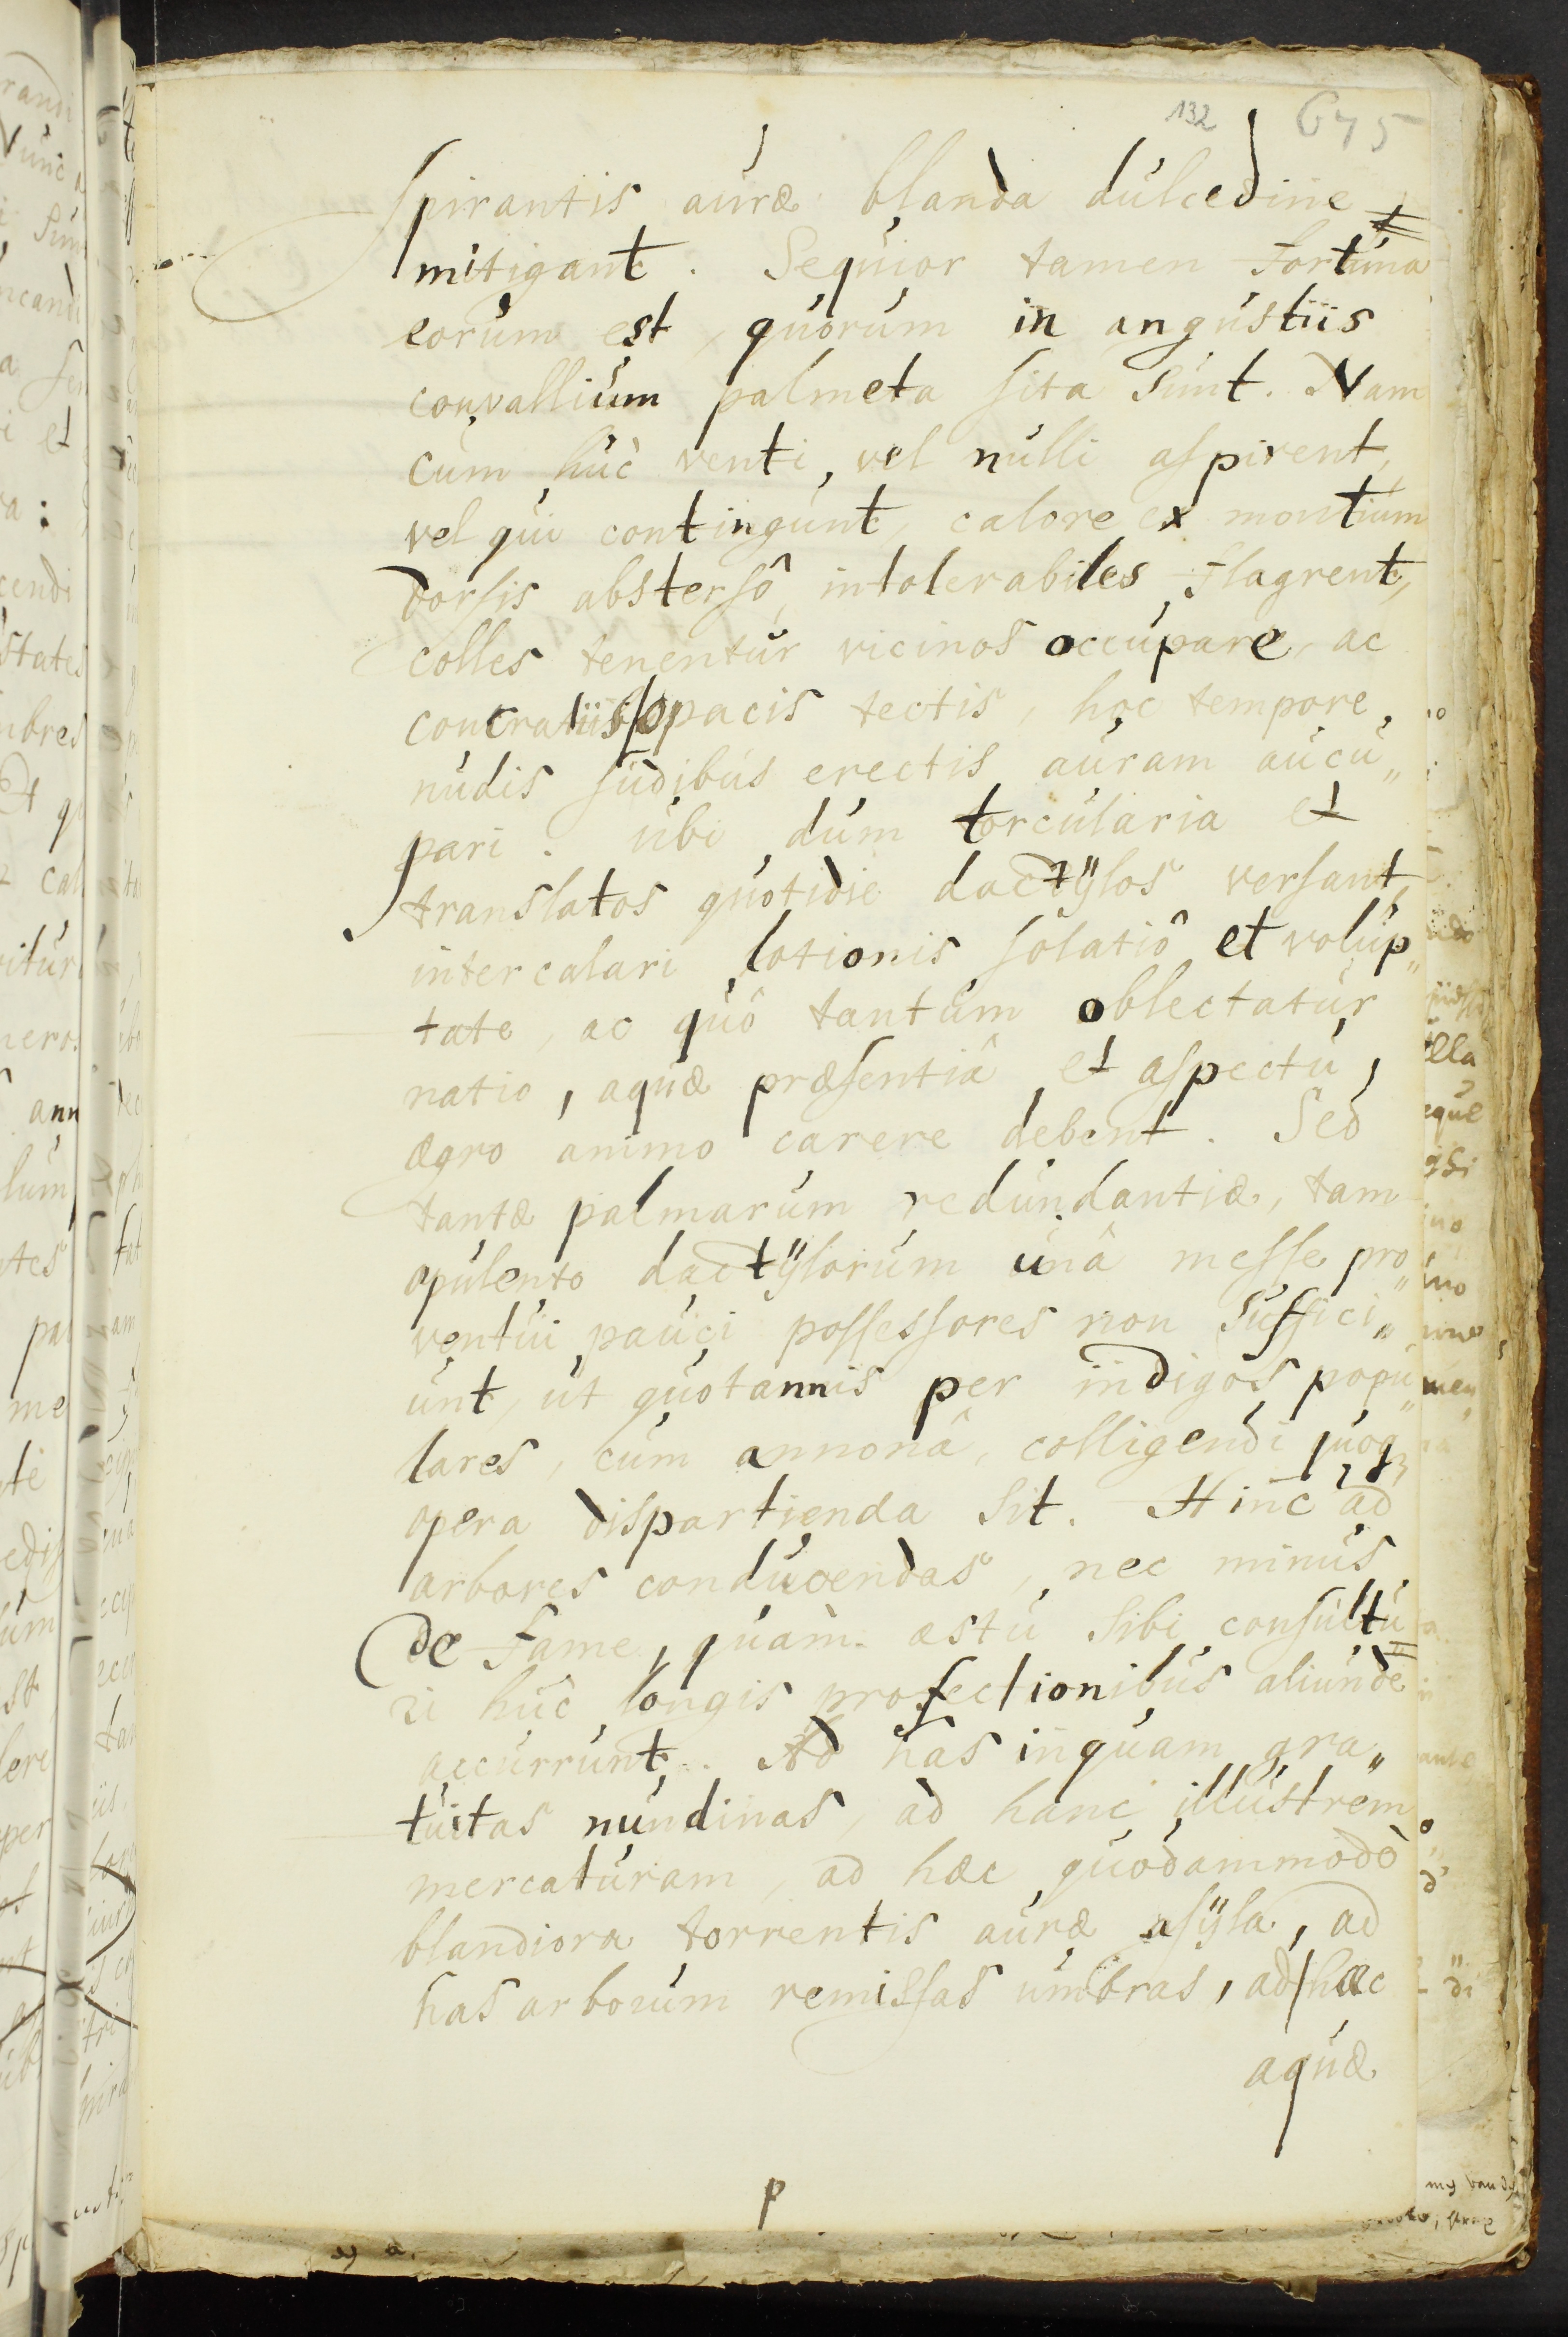 132 675
spirantis auræ blanda dulcedine
mitigant. Sequior tamen fortuna
eorum est, quorum in angustiis
convallium palmeta sita sunt. Nam
cum huc venti, vel nulli aspirent,
vel qui contingunt, calore ex montium
dorsis abstersô, intolerabiles flagrent,
colles tenentur vicinos occupare, ac
opacis tectis, hoc tempore,
nudis sudibus erectis auram aucu„
pari. ubi dum torcularia et
translatos quotidie dactÿlos versant,
intercalari lotionis solatiô et volup„
tate, ac quô tantùm oblectatur
natio, aquæ præsentiâ et aspectu,
ægro animo carere debent. Sed
tantæ palmarum redundantiæ, tam
opulento dactÿlorum unâ messe pro„
ventui pauci possessores non suffici„
unt, ut quotannis per indigos popu„
lares, cum annonâ, colligendi quoq
opera dispartienda sit. Hinc ad
arbores conducendas, nec minus
de fame, quàm æstu sibi consultu=
ri huc longis profectionibus aliunde
accurrunt. Ad has inquam gra„
tuitas nundinas, ad hanc illustrem
mercaturam, ad hæc quodammodò
blandiora torrentis auræ asÿla, ad
has arborum remissas umbras, ad hæc
aquæ
p